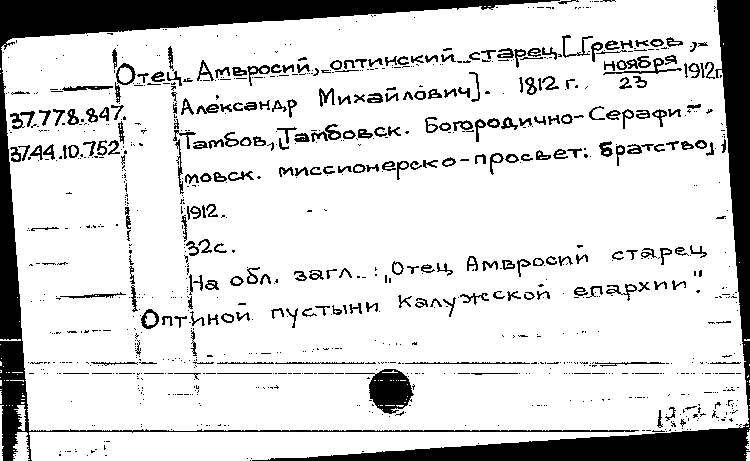 Отец Амвросий, оптинский старец [Гренков,
Александр Михайлович]. 1812 г. ноября 23 - 1912 г.
37.77.8.847.
Тамбов, [Тамбовск. Богородично-Серафи-
37.44.10.752.
мовск. миссионерско-просвет: Братство],
1912.
32с.
На обл. загл.: „Отец Амвросий старец
Оптиной пустыни Калужской епархии".